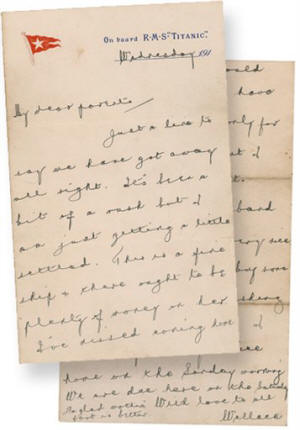 On board R·M·S·"TITANIC".
Wednesday 191
My dear parents
Just a line to
say we have got away
all right. It's been a
bit of a rush but I
am just getting a little
settled. This is a fine
ship & there ought to be
plenty of money on her.
I've missed coming home
ould
have
only for
at I
t.
band
very nice
buy some
I
home on the Sunday morning
We are due here on the Saturday
So glad mother's
foot is better. With love to all
Wallace